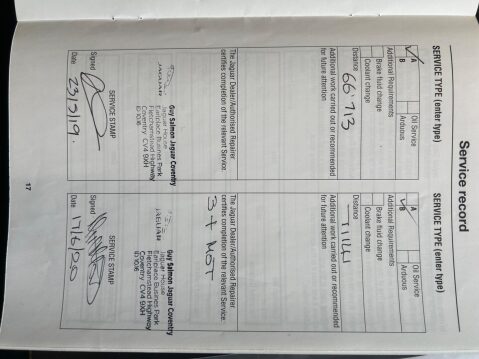 Service record
SERVICE TYPE (enter type)
A
B
Oil Service
Arduous
Additional Requirements
Brake fluid change
Coolant change
Distance
66713
Additional work carried out or recommended
for future attention
The Jaguar Dealer/Authorised Repairer
certifies completion of the relevant Service:
JAGUAR
Guy Salmon Jaguar Coventry
Jaguar House
Earlplace Business Park
Fletchamstead Highway
Coventry CV4 9XH
ID 1016
SERVICE STAMP
Signed
Date 23/2/19.
SERVICE TYPE (enter type)
A
B
Oil Service
Arduous
Additional Requirements
Brake fluid change
Coolant change
Distance
Additional work carried out or recommended
for future attention
The Jaguar Dealer/Authorised Repairer
certifies completion of the relevant Service:
3 + MOT
JAGUAR
Guy Salmon Jaguar Coventry
Jaguar House
Earlplace Business Park
Fletchamstead Highway
Coventry CV4 9XH
ID 1016
SERVICE STAMP
Signed
Date 17/6/20
17